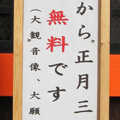 から正月三
無料です
（大観音像、大願